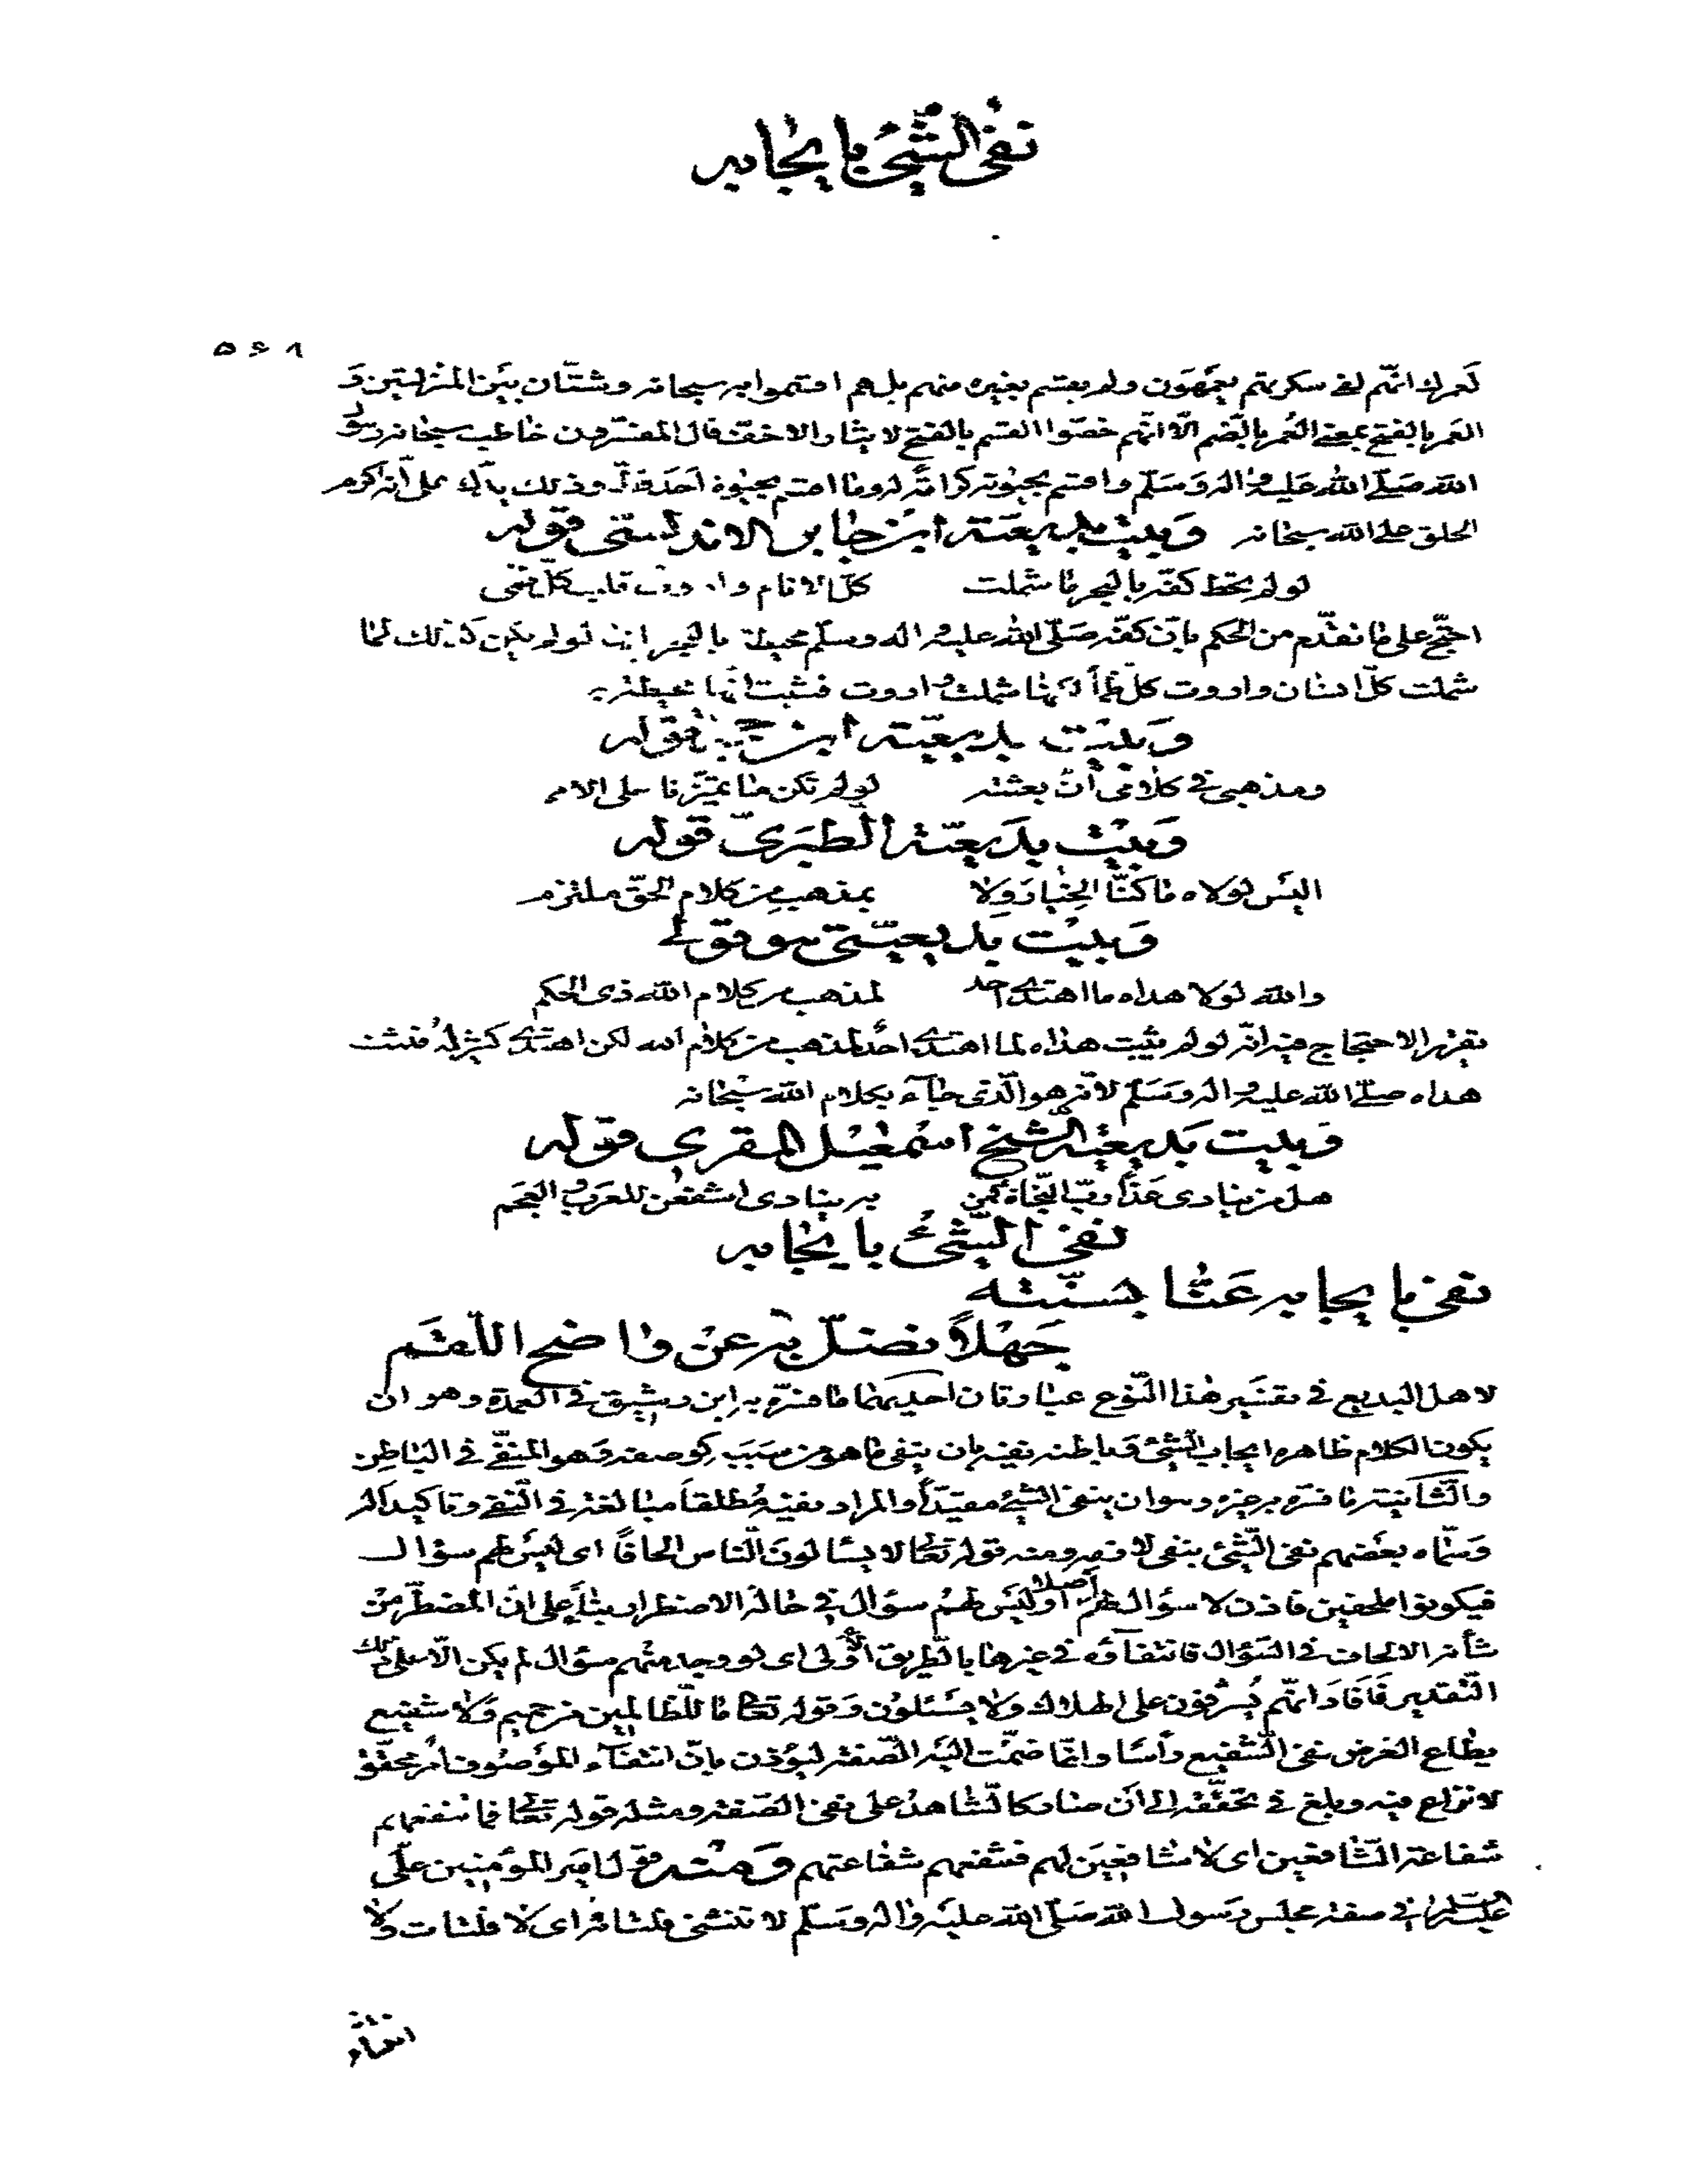 نفى الشّئ بايجابه
٥٤١
لعمرك انّهم لفى سكرتهم يعمهون ولم يقسم بغيره منهم بل هم اقسموا به سبحانه وشتّان بين المنزلتين و
العمر بالفتح بمعنى العُمر بالضم الّا انّهم خصّوا القسم بالفتح لايثار الاخفّ قال المفسّرون خاطب سبحانه رسول
الله صلّى الله عليه واله وسلّم واقسم بحيوته كرامة له وما اقسم بحيوة احد قط وذلك يدلّ على انّه اكرم
الخلق على الله سبحانه وبيت بديعيّة ابن جابر الاندلسى قوله
لو لم تحط كفّه بالبحر ما شملت كلّ الانام واروت قلب كلّ ظمى
احتجّ على ما تقدّم من الحكم بانّ كفّه صلّى الله عليه واله وسلّم محيطة بالبحر لو لم يكن كذلك لما
شملت كلّ انسان واروت كلّ ظمأ لكنها شملت واروت فثبت انّها محيطة به
وبيت بديعيّة ابن حجّة قوله
ومذهبى فى كلامى انّ بعثته لو لم تكن ما تميّزنا على الامم
وبيت بديعيّة الطبرىّ قوله
اليس لولاه ما كنّا الخيار ولا بمذهب من كلام الحقّ ملتزم
وبيت بديعيّتى هو قولى
والله لولا هداه ما اهتدى احد لمذهب من كلام الله ذى الحكم
تقرير الاحتجاج فيه انّه لو لم يثبت هداه لما اهتدى احد لمذهب من كلام الله لكن اهتدى كثير له فثبت
هداه صلّى الله عليه واله وسلّم لانّه هو الّذى جاء بكلام الله سبحانه
وبيت بديعيّة الشيخ اسمعيل المقرى قوله
هل من ينادى غدًا ربّ النّجاة كمن به ينادى اشفعن للعرب والعجم
نفى الشّئ بايجابه
نفى بايجابه عنّا بسنّته
جهلًا نضلّ به عن واضح اللّقم
لاهل البديع فى تفسير هذا النّوع عبارتان احديهما ما فسّره به ابن رشيق فى العمدة وهو ان
يكون الكلام ظاهره ايجاب الشّئ وباطنه نفيه بان ينفى ما هو من سببه كوصفه وهو المنفىّ فى الباطن
والثّانية ما فسّره به غيره وهو ان ينفى الشّئ مقيّدًا والمراد نفيه مطلقًا مبالغة فى النّفى وتاكيدا له
وسمّاه بعضهم نفى الشّئ بنفى لازمه ومنه قوله تعالى لا يسالون النّاس الحافًا اى ليس لهم سؤال
فيكونوا ملحفين فاذن لا سؤال لهم اصلا او ليس لهم سؤال فى حالة الاضطرار بناءً على انّ المضطرّ من
شأنه الالحاف فى السّؤال فانتفاؤه فى غيرها بالطّريق الاولى اى لو وجد منهم سؤال لم يكن الّا على ذلك
التّقدير فافاد انّهم يشرفون على الهلاك ولا يسئلون وقوله تعالى ما للظّالمين من حميم ولا شفيع
يطاع الغرض نفى الشّفيع رأسا وانّما ضمّت اليه الصّفة ليؤذن بانّ انتفاء الموصوف امر محقّق
لا نزاع فيه وبلغ فى تحقّقه الى ان صار كالشّاهد على نفى الصّفة ومثله قوله تعالى فما تنفعهم
شفاعة الشّافعين اى لا شافعين لهم فتنفعهم شفاعتهم ومنه قول امير المؤمنين علىّ
عليه السلام فى صفة مجلس رسول الله صلّى الله عليه واله وسلّم لا تنثى فلتاته اى لا فلتات ولا
انثاء